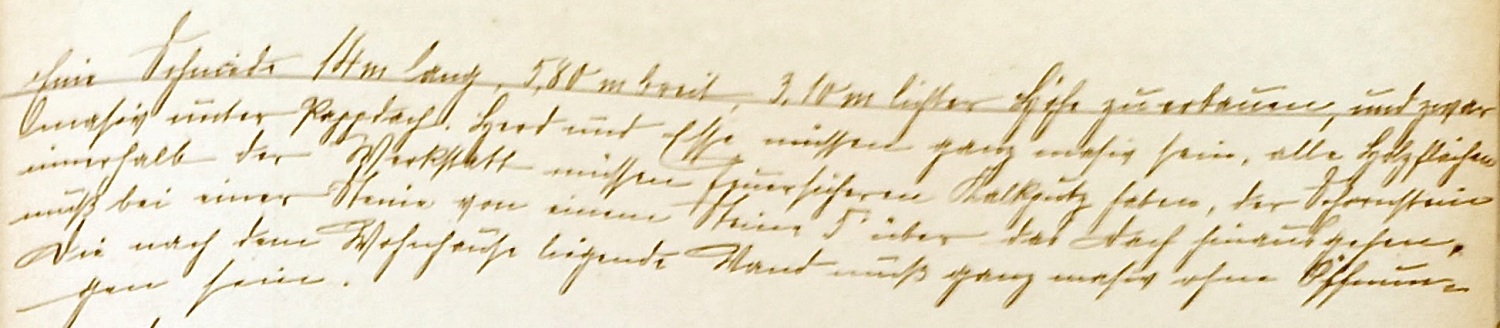 Eine Schmiede 14 m lang, 5,80 m breit, 3,10 m lichter Höhe zu erbauen, und zwar
massiv unter Pappdach. Herd und Esse müssen ganz massiv sein, alle Holzflächen
innerhalb der Werkstatt müssen feuersicheren Kalkputz haben, der Schornstein
muß bei einer von einem Stein 5' über das Dach hinausgehen,
Die nach dem Wohnhause liegende Wand muß ganz massiv ohne Öffnun-
gen sein.